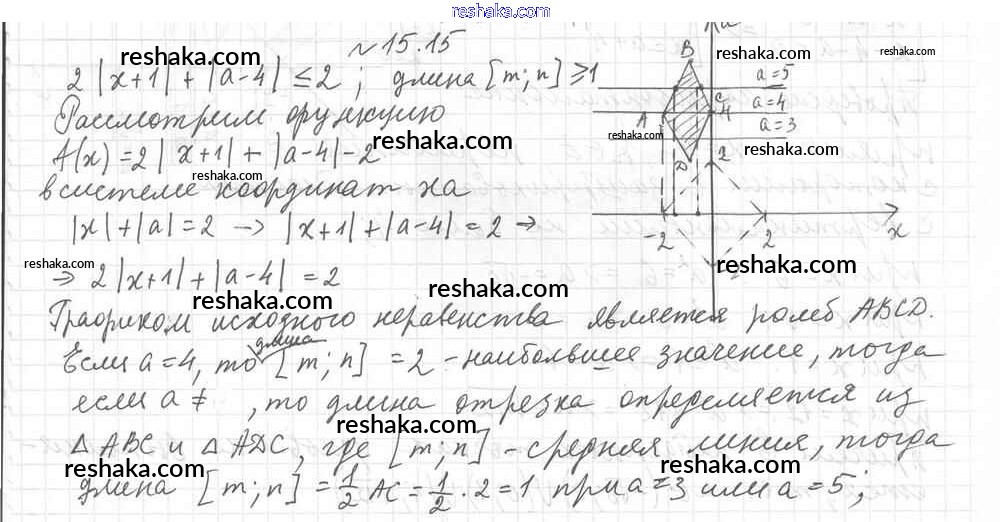 reshaka.com
№15.15
reshaka.com
reshaka.com
2|x+1| + |a-4| ≤ 2 ; длина [m; n] ≥ 1
Рассмотрим функцию
reshaka.com
A(x) = 2|x+1| + |a-4| - 2
reshaka.com
в системе координат xa
|x| + |a| = 2 → |x+1| + |a-4| = 2 →
reshaka.com
⇒ 2|x+1| + |a-4| = 2
reshaka.com
reshaka.com
B
a=5
C
a=4
4
A
reshaka.com
a=3
D
2
-2
2
x
-2
reshaka.com
reshaka.com
Графиком исходного неравенства является ромб ABCD.
длина
Если a=4, то [m; n] = 2 - наибольшее значение, тогда
если a ≠ , то длина отрезка определяется из
reshaka.com
△ABC и △ADC, где [m; n] - средняя линия, тогда
reshaka.com
reshaka.com
длина [m; n] = 1/2 AC = 1/2 · 2 = 1 при a = 3 или a = 5;
reshaka.com
reshaka.com